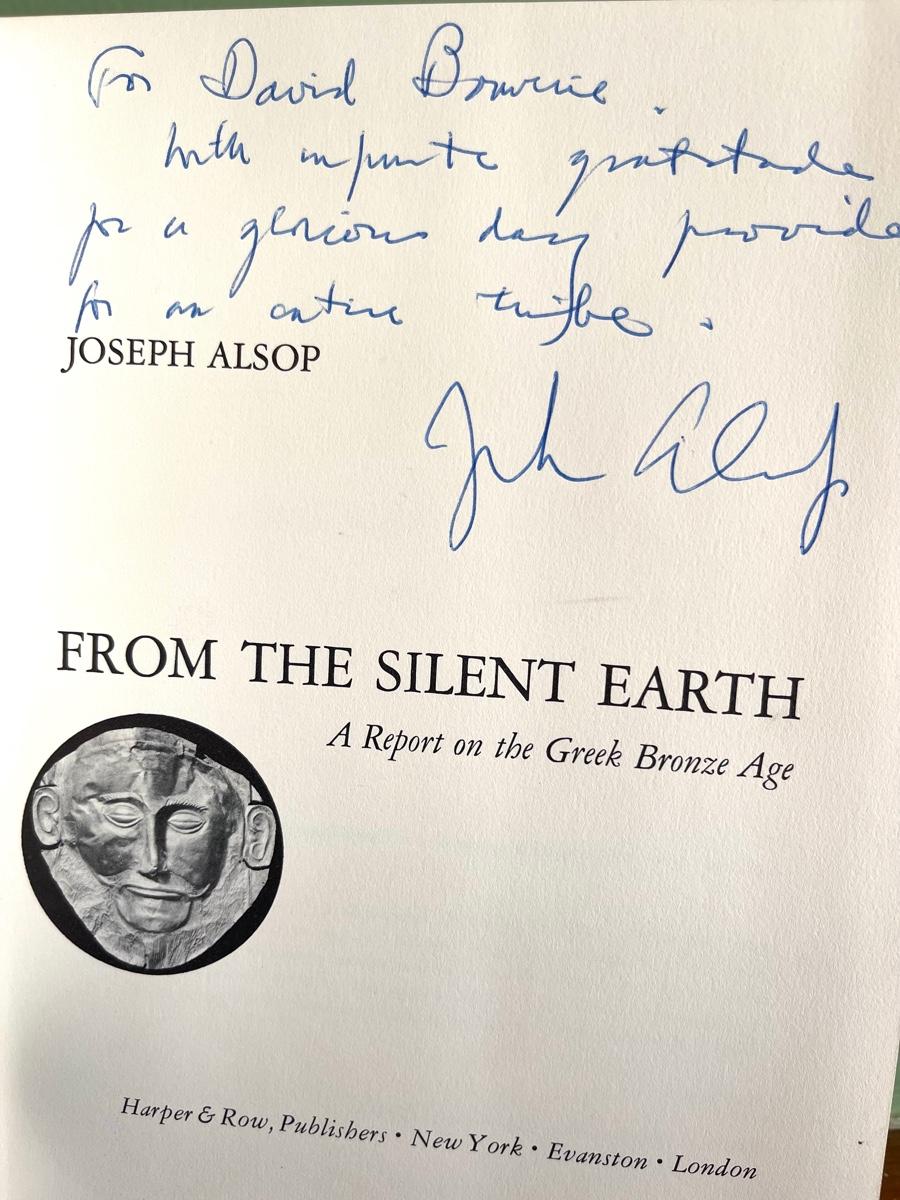 For David
With infinite gratitude
for a glorious day provide
for an entire tribe.
JOSEPH ALSOP
Alsop
FROM THE SILENT EARTH
A Report on the Greek Bronze Age
Harper & Row, Publishers • New York • Evanston • London